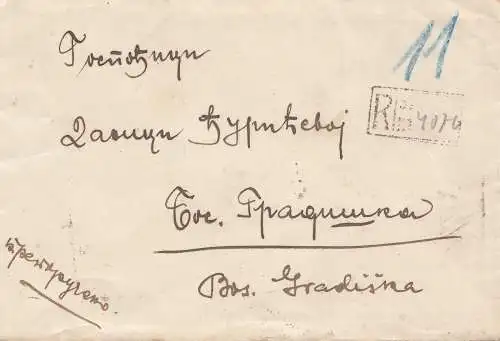 11
Госпођици
R 4074
Даници Ђурићевој
Бос. Градишка
препоручено.
Bos. Gradiška